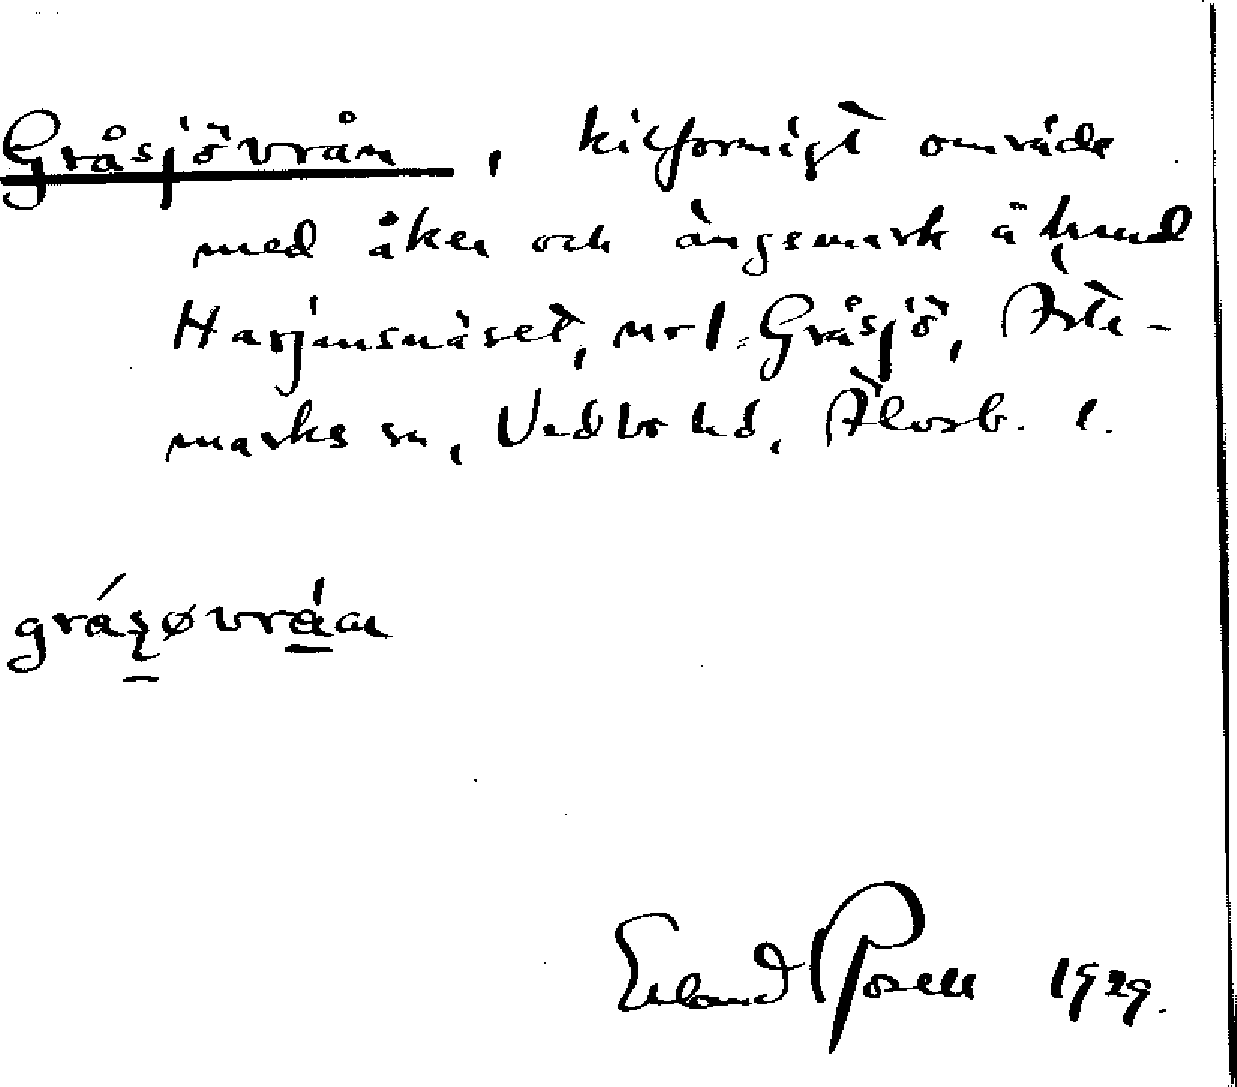 Gråsjövrån, kilformigt område
med åker och ängsmark å hmd
Harjensnäset, nr 1 Gråsjö, Ärte-
marks sn, Vedbo hd, Älvsb. l.
grásøvráan
Erland Rosell 1929.